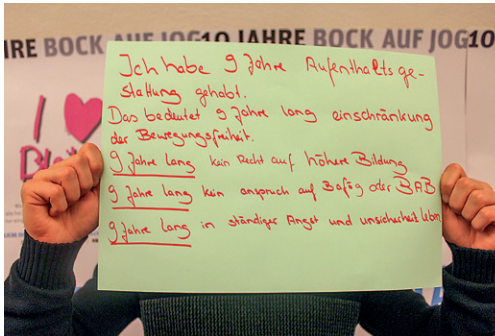 IRE BOCK AUF JOG10 JAHRE BOCK AUF JOG10
I
Ich habe 9 Jahre Aufenthaltsge-
stattung gehabt.
Das bedeutet 9 Jahre lang einschränkung
der Bewegungsfreiheit.
9 Jahre lang kein Recht auf höhere Bildung
9 Jahre lang kein anspruch auf Bafög oder BAB
9 Jahre lang in ständiger Angst und unsicherheit leben